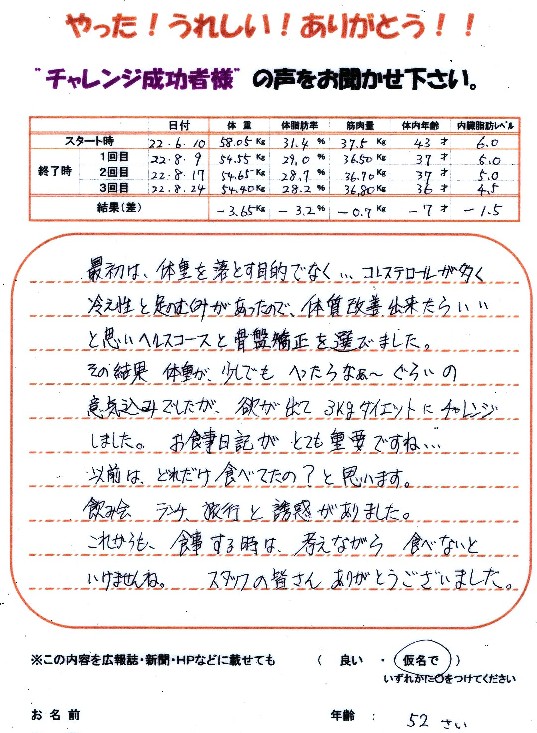 やった！うれしい！ありがとう！！
"チャレンジ成功者様" の声をお聞かせ下さい。
日付 体 重 体脂肪率 筋肉量 体内年齢 内臓脂肪レベル
スタート時 22.6.10 58.05 Kg 31.4 % 37.5 Kg 43 才 6.0
終了時 1回目 22.8.9 54.55 Kg 29.0 % 36.50 Kg 37 才 5.0
2回目 22.8.17 54.65 Kg 28.7 % 36.70 Kg 37 才 5.0
3回目 22.8.24 54.40 Kg 28.2 % 36.80 Kg 36 才 4.5
結果(差) -3.65 Kg -3.2 % -0.7 Kg -7 才 -1.5
最初は、体重を落とす目的でなく… コレステロールが多く
冷え性と足のむくみがあったので、体質改善出来たらいい
と思いヘルスコースと骨盤矯正を選びました。
その結果 体重が、少しでも へったらなぁ〜 ぐらいの
意気込みでしたが、欲が出て 3kgダイエットにチャレンジ
しました。 お食事日記が とても重要ですね…
以前は、どれだけ食べてたの？と思います。
飲み会 ランチ、旅行と誘惑がありました。
これからも、食事する時は、考えながら 食べないと
いけませんね。 スタッフの皆さん ありがとうございました。
※この内容を広報誌・新聞・HPなどに載せても （ 良い ・ 仮名で ）
いずれかに○をつけてください
お 名 前 年齢 ： 52 さい